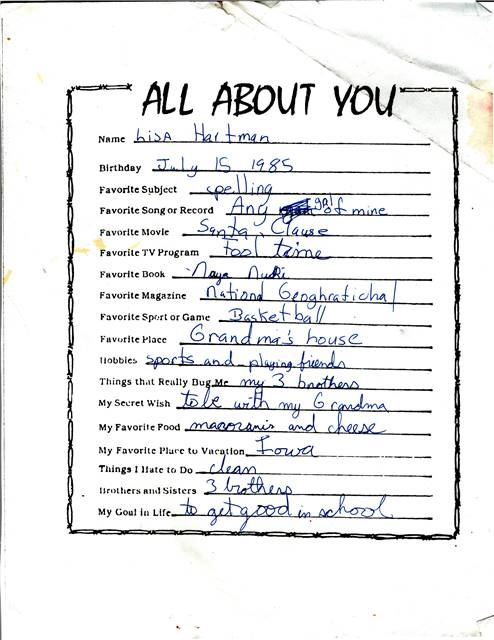 ALL ABOUT YOU
Name Lisa Hartman
Birthday July 15 1985
Favorite Subject spelling
Favorite Song or Record Any of mine
Favorite Movie Santa Clause
Favorite TV Program Tool time
Favorite Book Naya Nuki
Favorite Magazine National Genghratichal
Favorite Sport or Game Basketball
Favorite Place Grandma's house
Hobbies sports and playing friends
Things that Really Bug Me my 3 brothers
My Secret Wish to be with my Grandma
My Favorite Food macoronis and cheese
My Favorite Place to Vacation Iowa
Things I Hate to Do clean
Brothers and Sisters 3 brothers
My Goal in Life to get good in school